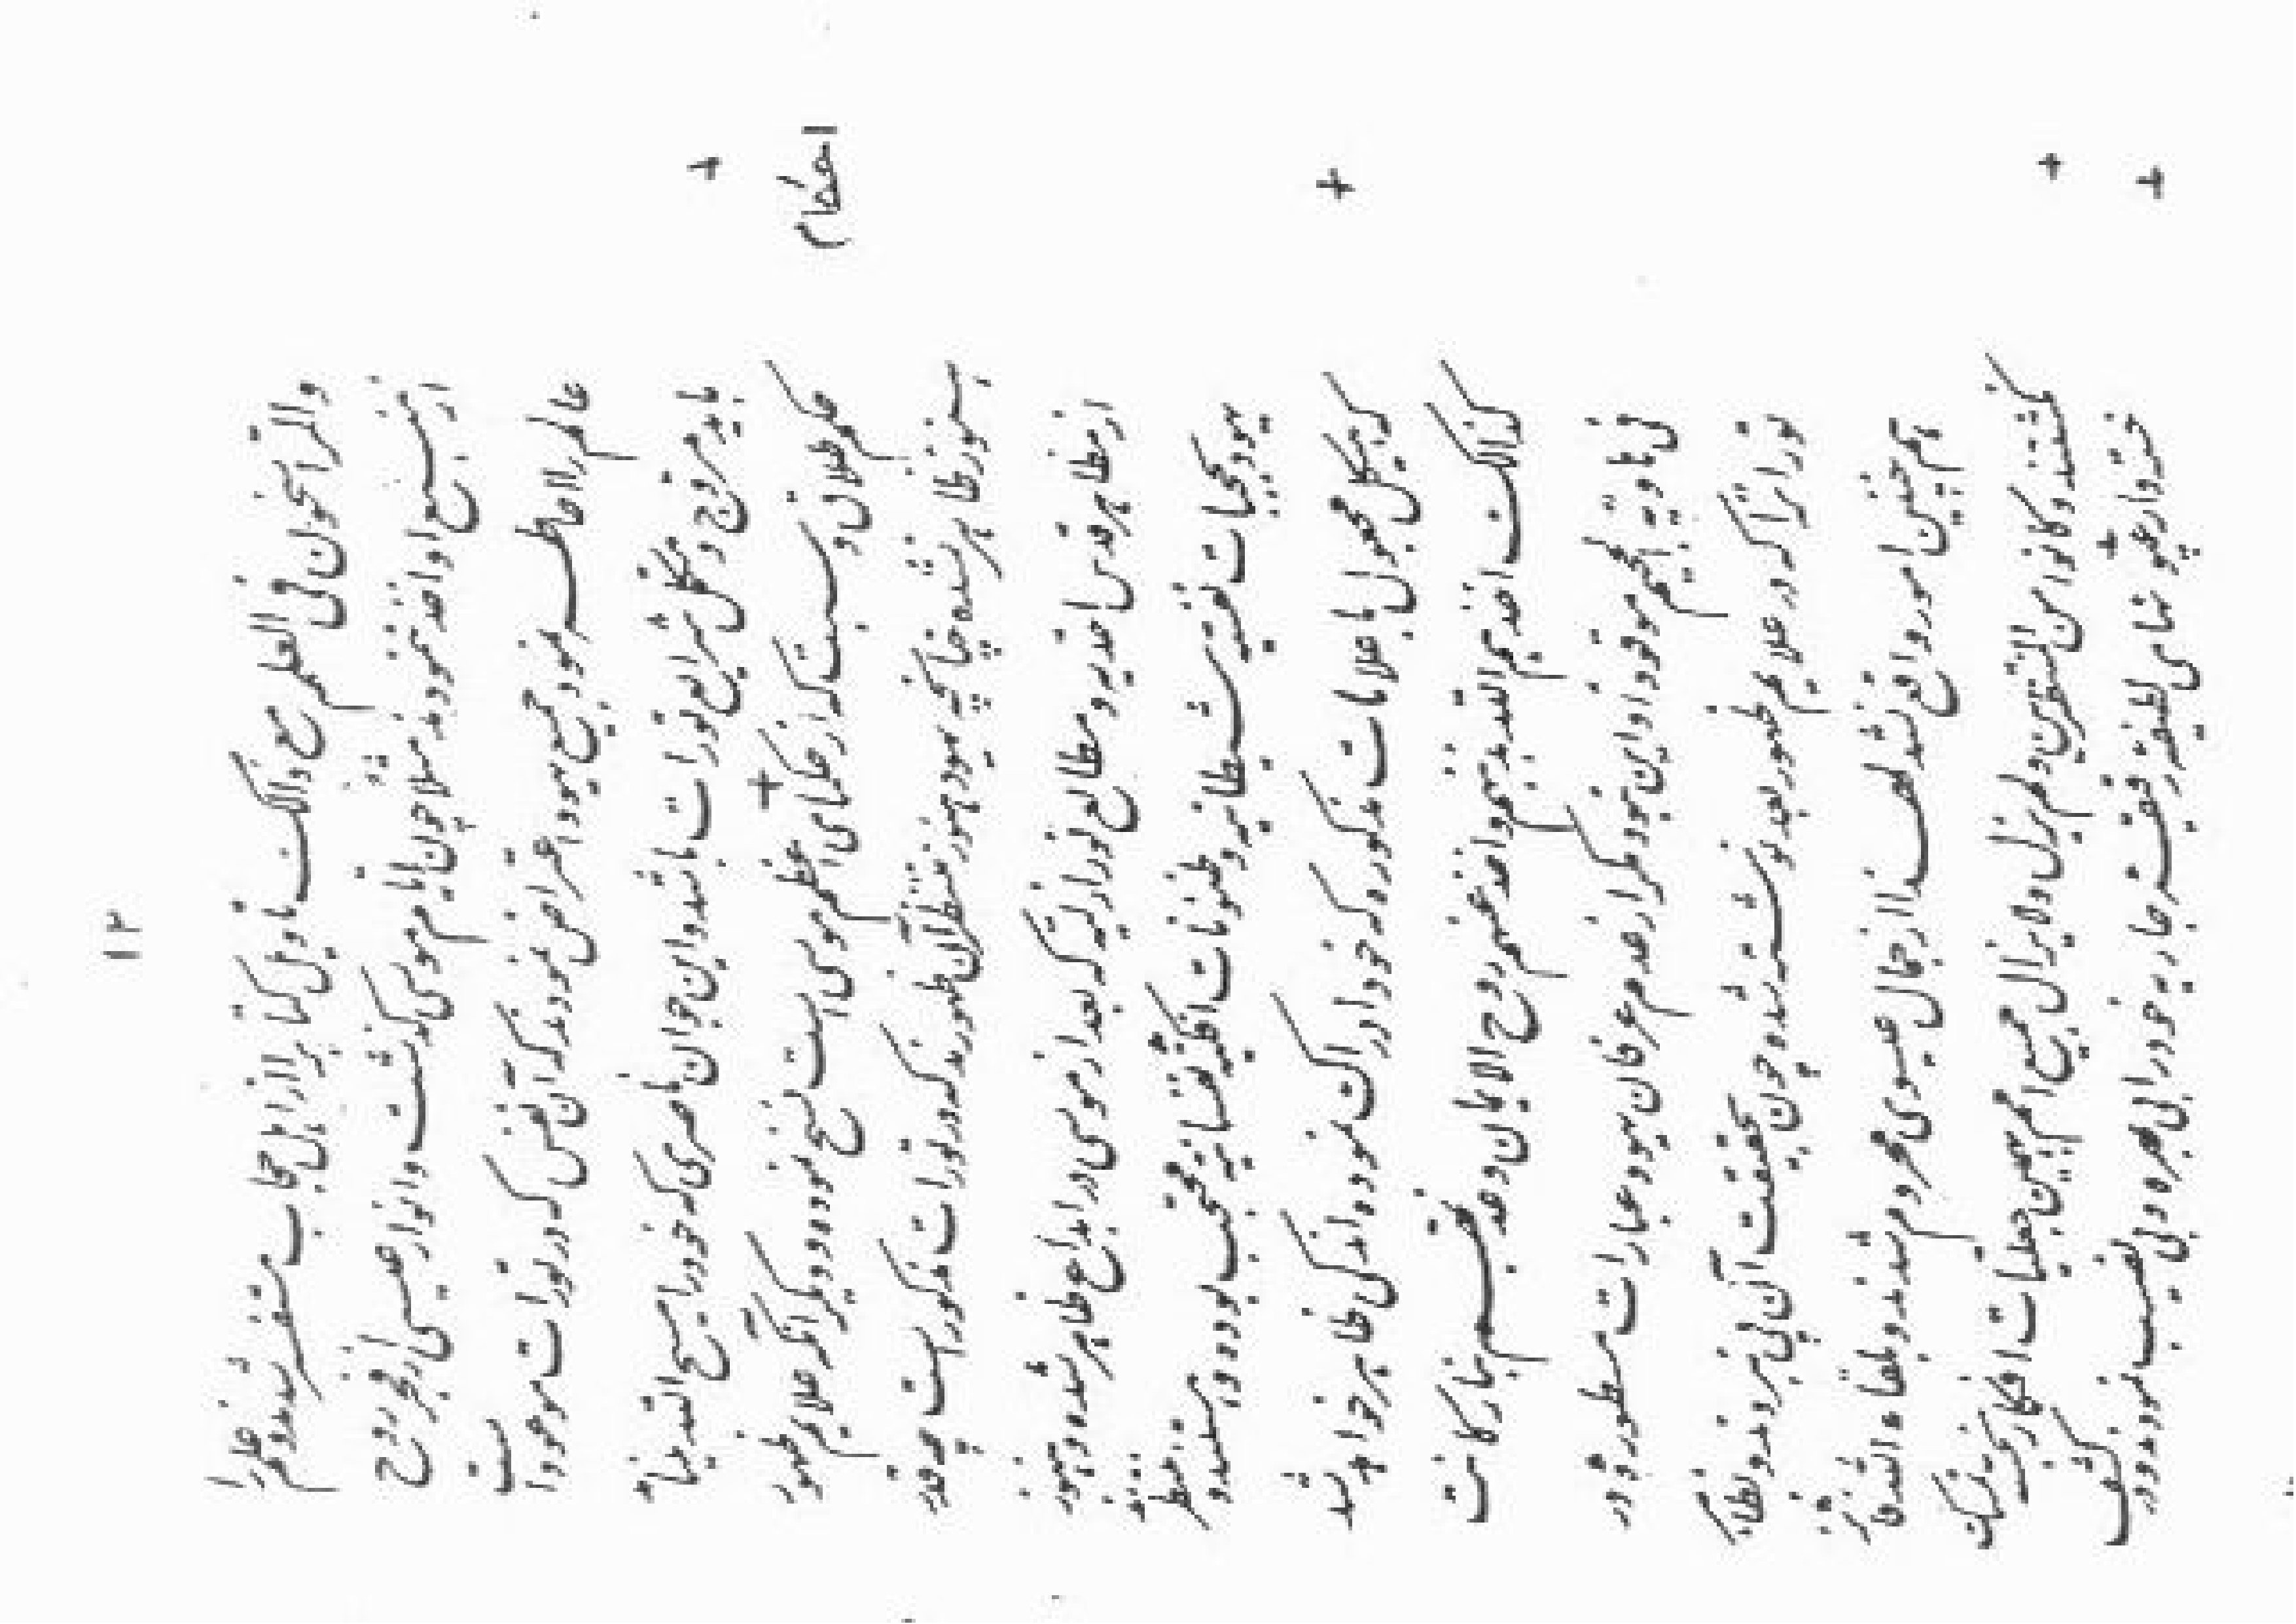 ١٢
والرّاسخون فی العلم مع ذالک تاویل کتاب را از اهل حجاب مستفسر شدند و علم را
از منبع او اخذ ننمودند مثلا چون ایّام موسی گذشت و انوار عیسی از فجر روح
عالم را احاطه نمود جمیع یهود اعتراض نمودند که آن نفس که در تورات موعود است
+ باید مروّج و مکمّل شرایع تورات باشد و این جوان ناصری که خود را مسیح الله مینامد
احکام حکم طلاق و سبت که از حکمهای + اعظم موسی است نسخ نموده و دیگر آنکه علایم ظهور
هنوز ظاهر نشده چنانچه یهود هنوز منتظر آن ظهورند که در تورات مذکور است چه قدر
از مظاهر قدس احدیه و مطالع نور ازلیه که بعد از موسی در ابداع ظاهر شده و هنوز
یهود بحجبات نفسیّه شیطانیه و ظنونات افکیّه نفسانیه محتجب بوده و هستند و منتظرند
+ که هیکل مجعول با علامات مذکوره که خود ادراک نموده اند کی ظاهر خواهد شد
کذالک اخذهم الله بذنبهم و اخذ عنهم روح الایمان و عذّبهم بنار کانت
فی هاویة الجحیم موقودا و این نبود مگر از عدم عرفان یهود عبارات مسطوره در
تورات را که در علایم ظهور بعد نوشته شده چون بحقیقت آن پی نبردند و بظاهر
هم چنین امور واقع نشد لهذا از جمال عیسوی محروم شدند و بلقاء الله فائز
+ نگشتند و کانوا من المنتظرین و لم یزل و لا یزال جمیع امم بهمین جعلیات افکار تمسک
+ جسته و از عیونهای لطیفه رقیقه جاریه خود را بی بهره و بی نصیب نمودند و در کشف